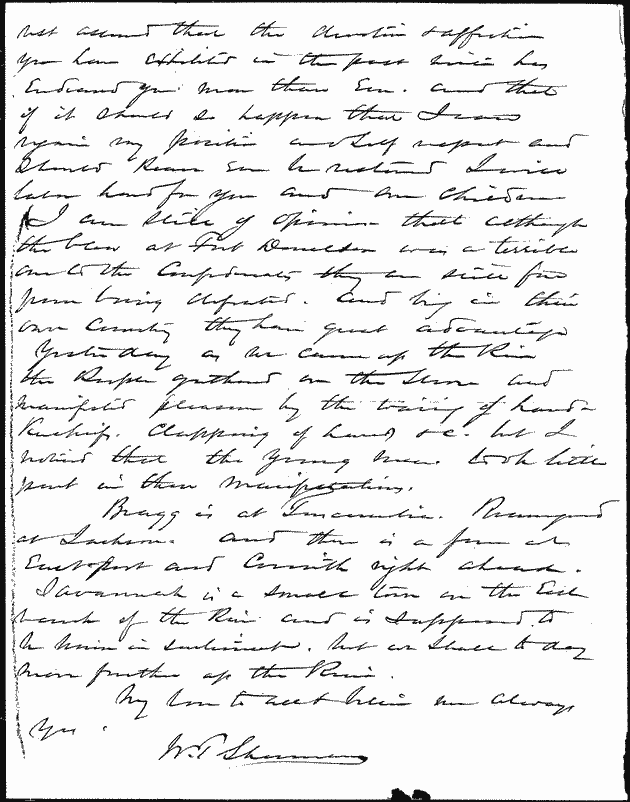 rest assured that the devotion & affection
you have exhibited in the past winter has
Endeared you more than Ever. and that
if it should so happen that I can
regain my position and self respect and
Should Peace Ever be restored I will
labor hard for you and our children
I am still of opinion that although
the blow at Fort Donelson was a terrible
one to the Confederates they are still far
from being defeated. and being in their
own Country they have great advantage
Yesterday as we came up the River
the People gathered on the Shore and
manifested pleasure by the waving of hand-
kerchiefs. Clapping of hands &c. but I
noticed that the young men took little
part in these manifestations.
Bragg is at Tuscumbia. Beauregard
at Jackson. and there is a force at
Eastport and Corinth right ahead.
Savannah is a small town on the East
bank of the River and is supposed to
be Union in sentiment. but we shall to day
move further up the River.
My love to all believe me always
Yrs.
W. T. Sherman